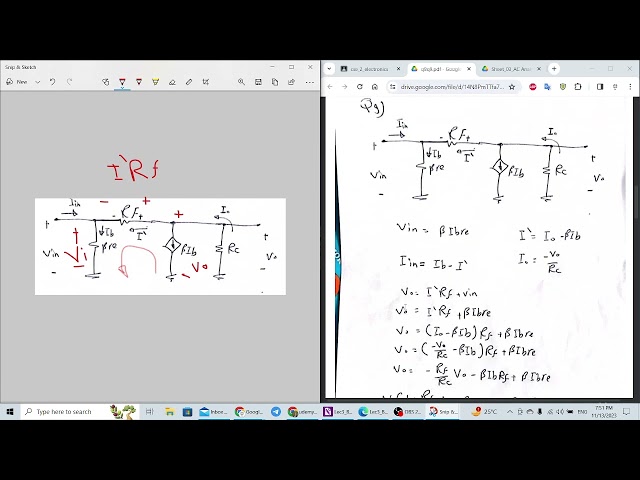 Snip & Sketch
I' Rf
- +
Iin - RF + + Io
+ Ib I' +
Vin Vi βre βIb Rc Vo
- - Vo -
cce_2_electronics
q9,q8.pdf - Google
Sheet_03_AC Anal
drive.google.com/file/d/14N8PmTTfa7...
P9)
Iin - RF + Io
+ Ib I' +
Vin βre βIb Rc Vo
- -
Vin = βIbre I' = Io - βIb
Iin = Ib - I' Io = -Vo/Rc
Vo = I'Rf + Vin
Vo = I'Rf + βIbre
Vo = (Io - βIb)Rf + βIbre
Vo = (-Vo/Rc - βIb)Rf + βIbre
Vo = -Rf/Rc Vo - βIbRf + βIbre
Type here to search
Inbox ...
Googl...
udemy...
Lec3_B...
Lec3_B...
OBS 2...
Snip & ...
25°C
ENG
7:51 PM
11/13/2023